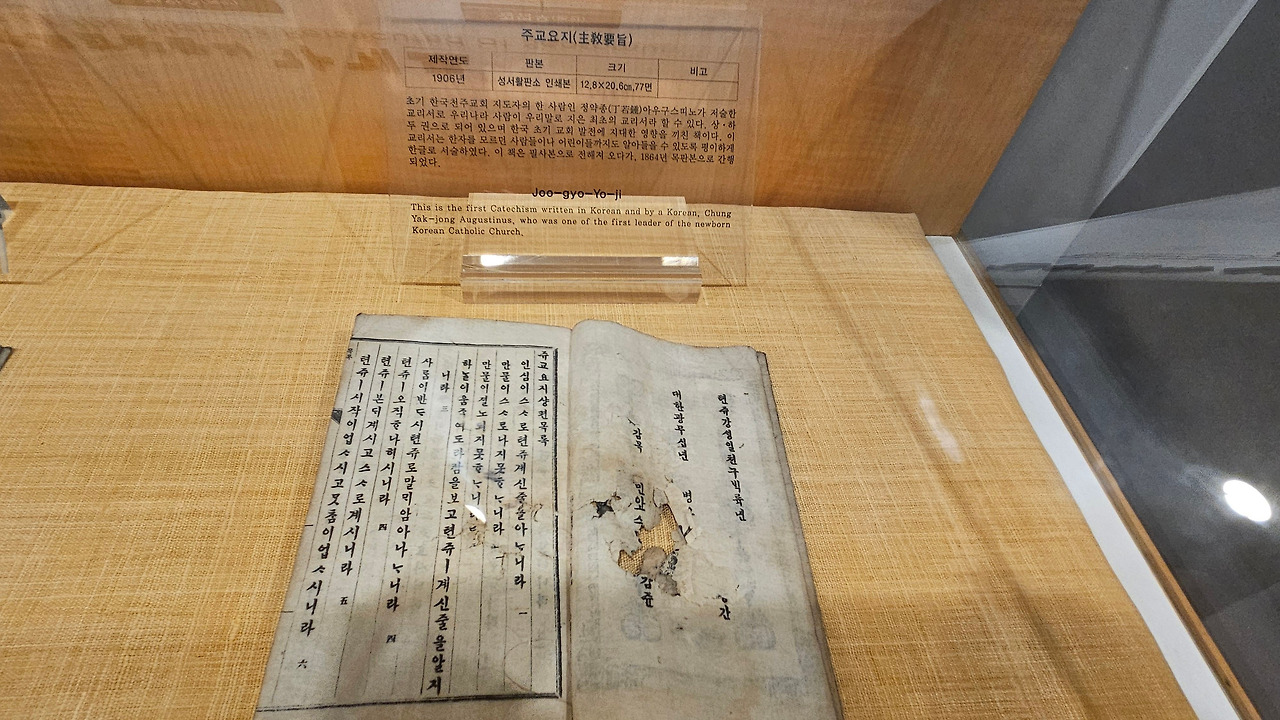 주교요지(主敎要旨)
제작연도 판본 크기 비고
1906년 성서활판소 인쇄본 12.8×20.6cm,77면
초기 한국천주교회 지도자의 한 사람인 정약종(丁若鍾)아우구스티노가 저술한
교리서로 우리나라 사람이 우리말로 지은 최초의 교리서라 할 수 있다. 상·하
두 권으로 되어 있으며 한국 초기 교회 발전에 지대한 영향을 끼친 책이다. 이
교리서는 한자를 모르던 사람들이나 어린이들까지도 알아들을 수 있도록 평이하게
한글로 서술하였다. 이 책은 필사본으로 전해져 오다가, 1864년 목판본으로 간행
되었다.
Joo-gyo-Yo-ji
This is the first Catechism written in Korean and by a Korean, Chung
Yak-jong Augustinus, who was one of the first leader of the newborn
Korean Catholic Church.
텬쥬강생일천구백륙년
대한광무십년
감목 민아오스
감쥰
간
쥬교요지샹편목록
인심이스스로텬쥬계신줄을아ᄂᆞ니라 一
만물이스스로나지못ᄒᆞᄂᆞ니라
만물이결노되지못ᄒᆞᄂᆞ니라
하ᄂᆞᆯ이움ᄌᆞᆨ여도라감을보고텬쥬ㅣ계신줄을알지
니라 三
사ᄅᆞᆷ이반ᄃᆞ시텬쥬로말ᄆᆡ암아나ᄂᆞ니라 四
텬쥬ㅣ오직ᄒᆞ나히시니라 四
텬쥬ㅣ본ᄃᆡ계시고스스로계시니라 五
텬쥬ㅣ시작이업ᄉᆞ시고ᄆᆞᆺᄎᆞᆷ이업ᄉᆞ시니라 六